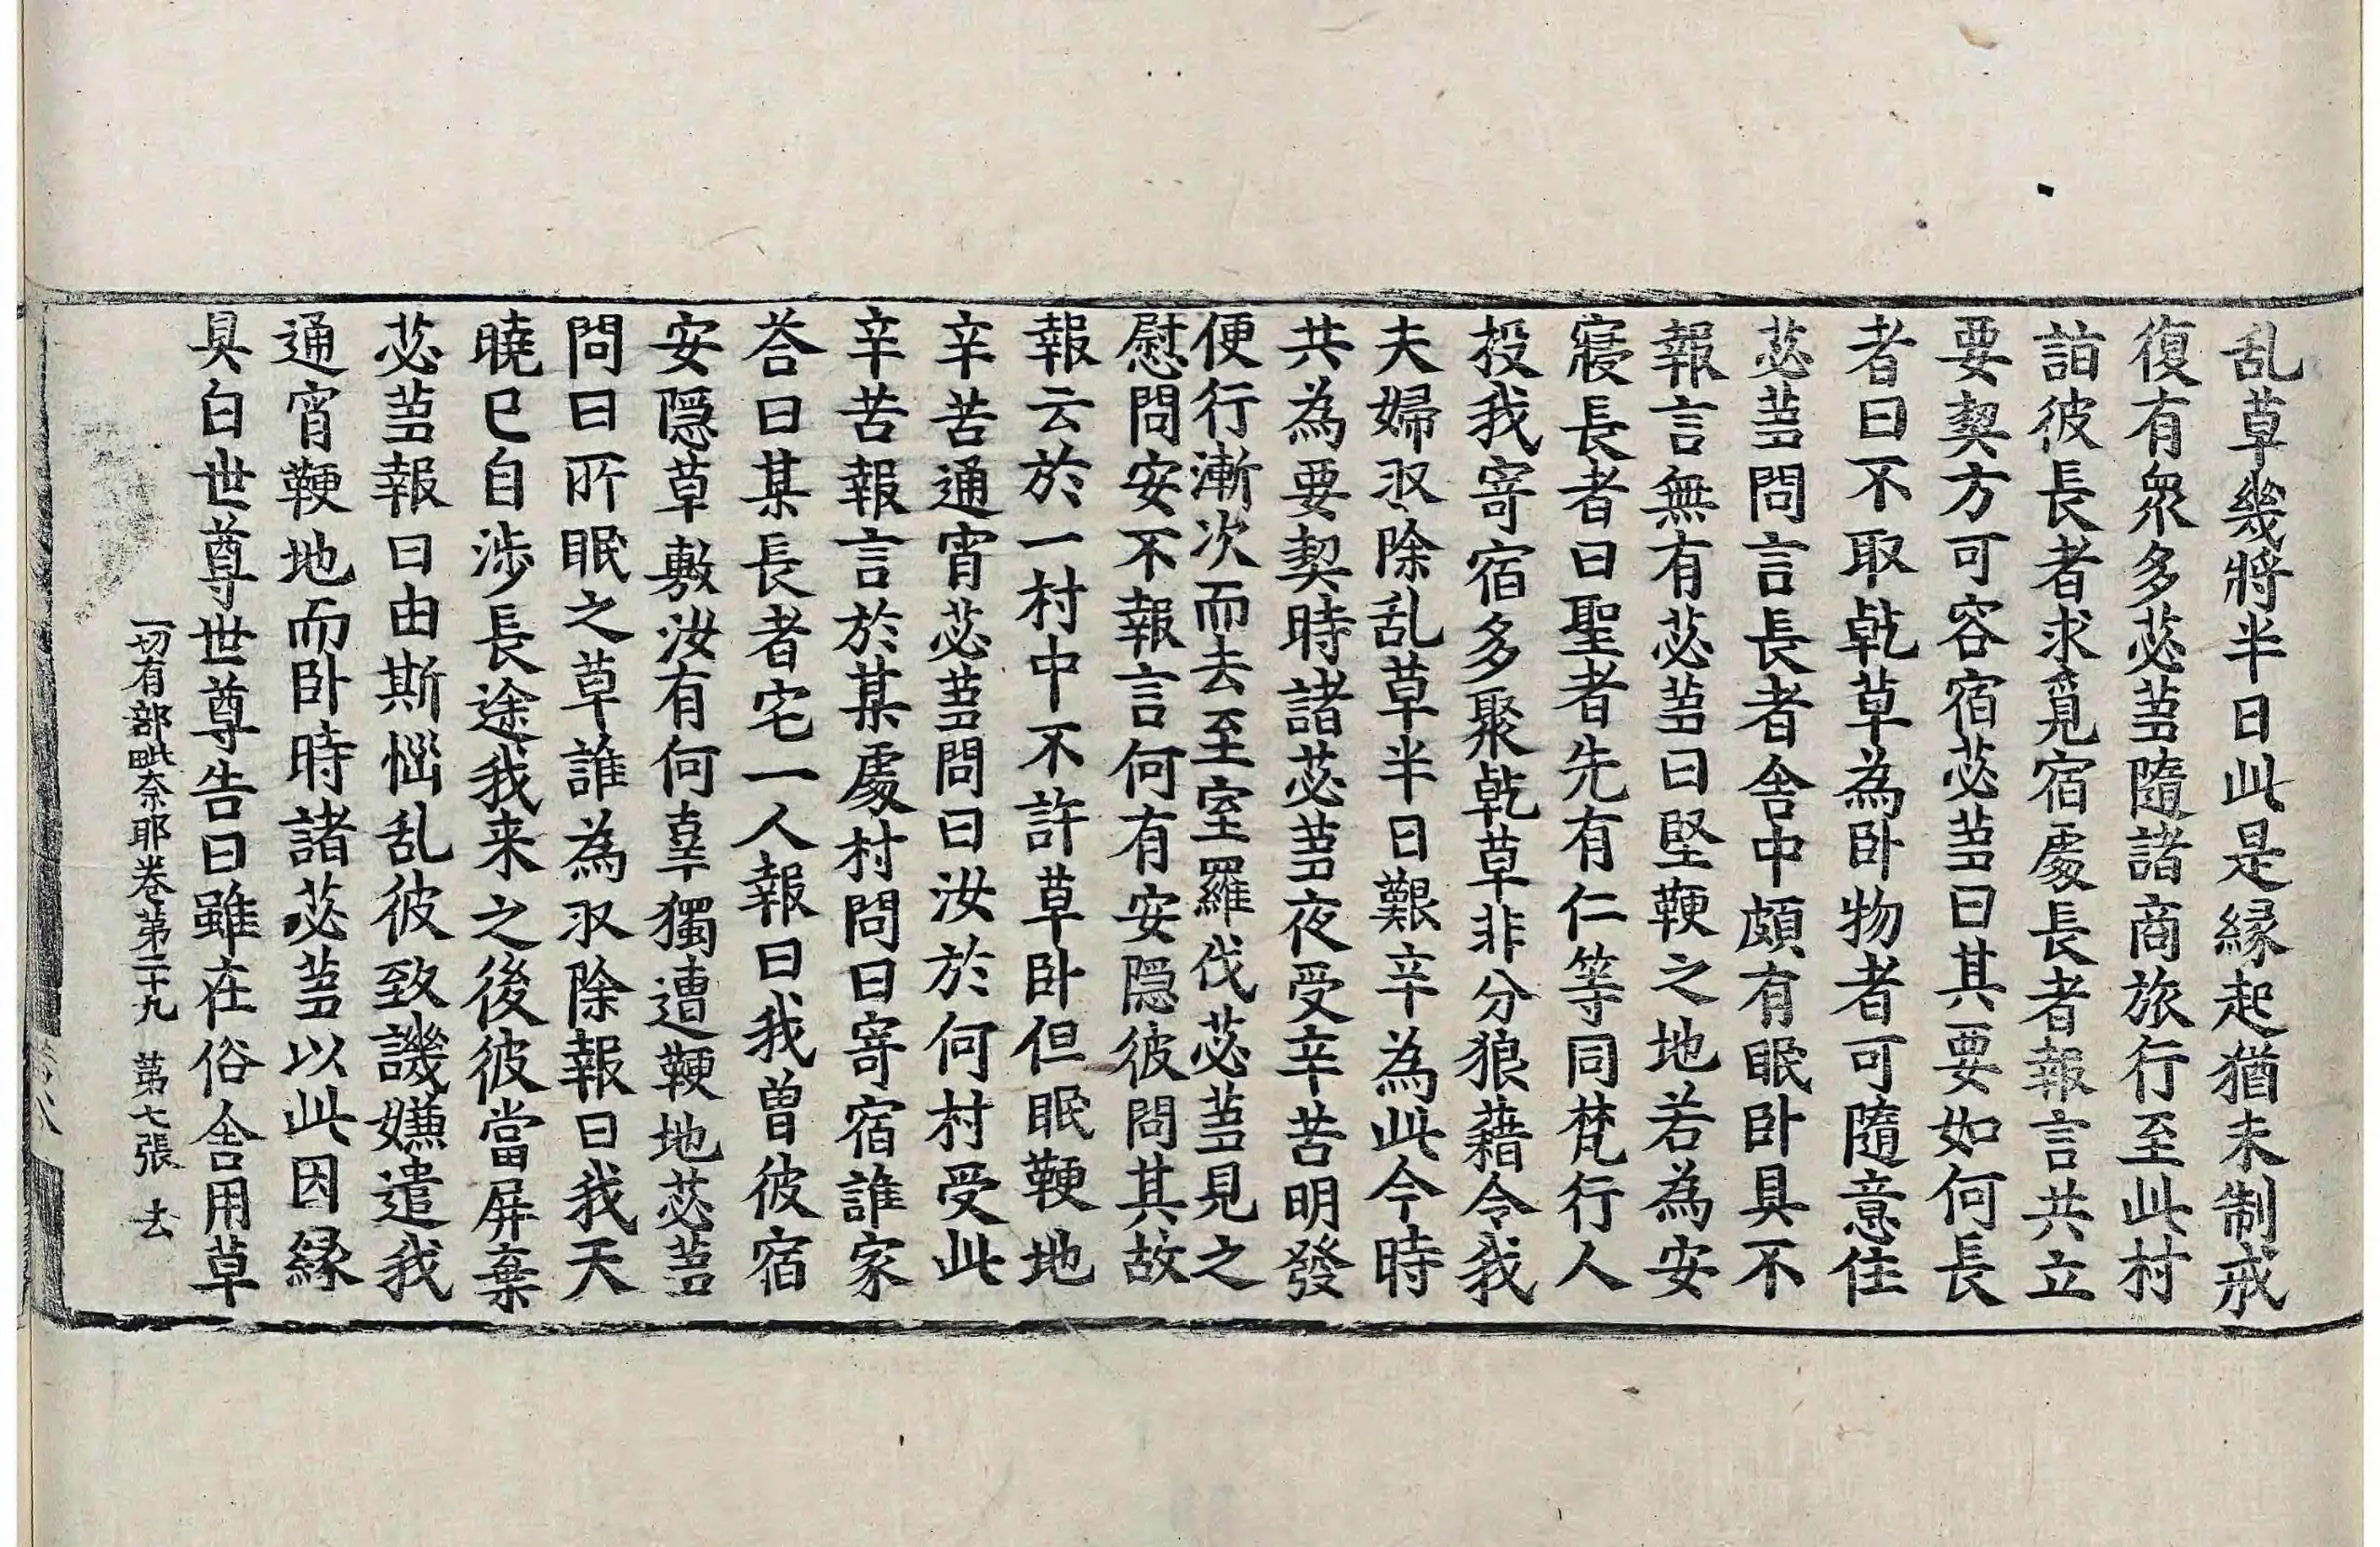 乱草幾將半日此是縁起猶未制戒
復有衆多苾蒭隨諸商旅行至此村
詣彼長者求覓宿處長者報言共立
要契方可容宿苾蒭曰其要如何長
者曰不取乹草為卧物者可隨意住
苾蒭問言長者舎中頗有眠卧具不
報言無有苾蒭曰堅鞕之地若為安
寢長者曰聖者先有仁等同梵行人
投我寄宿多聚乹草非分狼藉令我
夫婦収除乱草半日艱辛為此今時
共為要契時諸苾蒭夜受辛苦明發
便行漸次而去至室羅伐苾蒭見之
慰問安不報言何有安隠彼問其故
報云於一村中不許草卧但眠鞕地
辛苦通宵苾蒭問曰汝於何村受此
辛苦報言於某處村問曰寄宿誰家
荅曰某長者宅一人報曰我曽彼宿
安隠草敷汝有何辜獨遭鞕地苾蒭
問曰所眠之草誰為収除報曰我天
曉已自渉長途我来之後彼當屏棄
苾蒭報曰由斯惱乱彼致譏嫌遣我
通宵鞕地而卧時諸苾蒭以此因縁
具白世尊世尊告曰雖在俗舎用草
一切有部毗奈耶卷第二十九 第七張 去